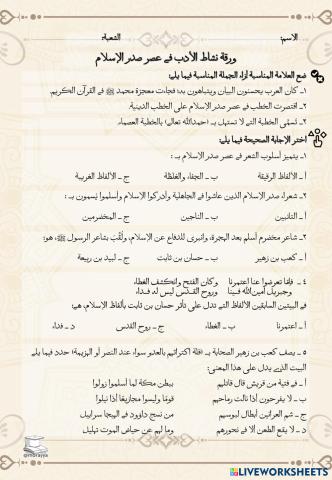 الاسم:
الشعبة:
ورقة نشاط الأدب في عصر صدر الإسلام
ضع العلامة المناسبة أزاء الجملة المناسبة فيما يلي:
١ـ كان العرب يحسنون البيان ويتباهون به؛ فجاءت معجزة محمد ﷺ في القرآن الكريم.
٢ـ اقتصرت الخطب في عصر صدر الإسلام على الخطب الدينية.
٣ـ تسمّى الخطبة التي لا تستهل بـ (حمدالله تعالى) بالخطبة العصماء.
اختر الإجابة الصحيحة فيما يلي:
١ـ يتميز أسلوب الشعر في عصر صدر الإسلام بـ :
أ ـ الألفاظ الرقيقة
ب ـ الجفاء والغلظة
ج ـ الألفاظ الغريبة
٢ـ شعراء صدر الإسلام الذين عاشوا في الجاهلية وأدركوا الإسلام وأسلموا يسمون بـ :
أ ـ التائبين
ب ـ الناجين
ج ـ المخضرمين
٣ـ شاعر مخضرم أسلم بعد الهجرة، وانبرى للدفاع عن الإسلام، ولُقّب بشاعر الرسول ﷺ، هو:
أ ـ كعب بن زهير
ب ـ حسان بن ثابت
ج ـ لبيد بن ربيعة
٤ ـ فإمّا تعرضوا عنا اعتمرنا وكان الفتح وانكشف الغطاء
وجبريل أمين الله فينا وروح القدس ليس له فداء
في البيتين السابقين الألفاظ التي تدل على تأثر حسان بن ثابت بألفاظ الإسلام، هي:
أ ـ اعتمرنا
ب ـ الغطاء
ج ـ روح القدس
د ـ فداء
٥ ـ يصف كعب بن زهير الصحابة بـ (قلة اكتراثهم بالعدو سواء عند النصر أو الهزيمة) حدد فيما يلي
البيت الذي يدل على هذا المعنى:
أ ـ في فتية من قريش قال قائلهم ببطن مكة لما أسلموا زولوا
ب ـ لا يفرحون إذا نالت رماحهم قومًا وليسوا مجازيعًا إذا نيلوا
ج ـ شم العرانين أبطال لبوسهم من نسج داوود في الهيجا سرابيل
د ـ لا يقع الطعن إلا في نحورهم وما لهم عن حياض الموت تهليل
LIVEWORKSHEETS